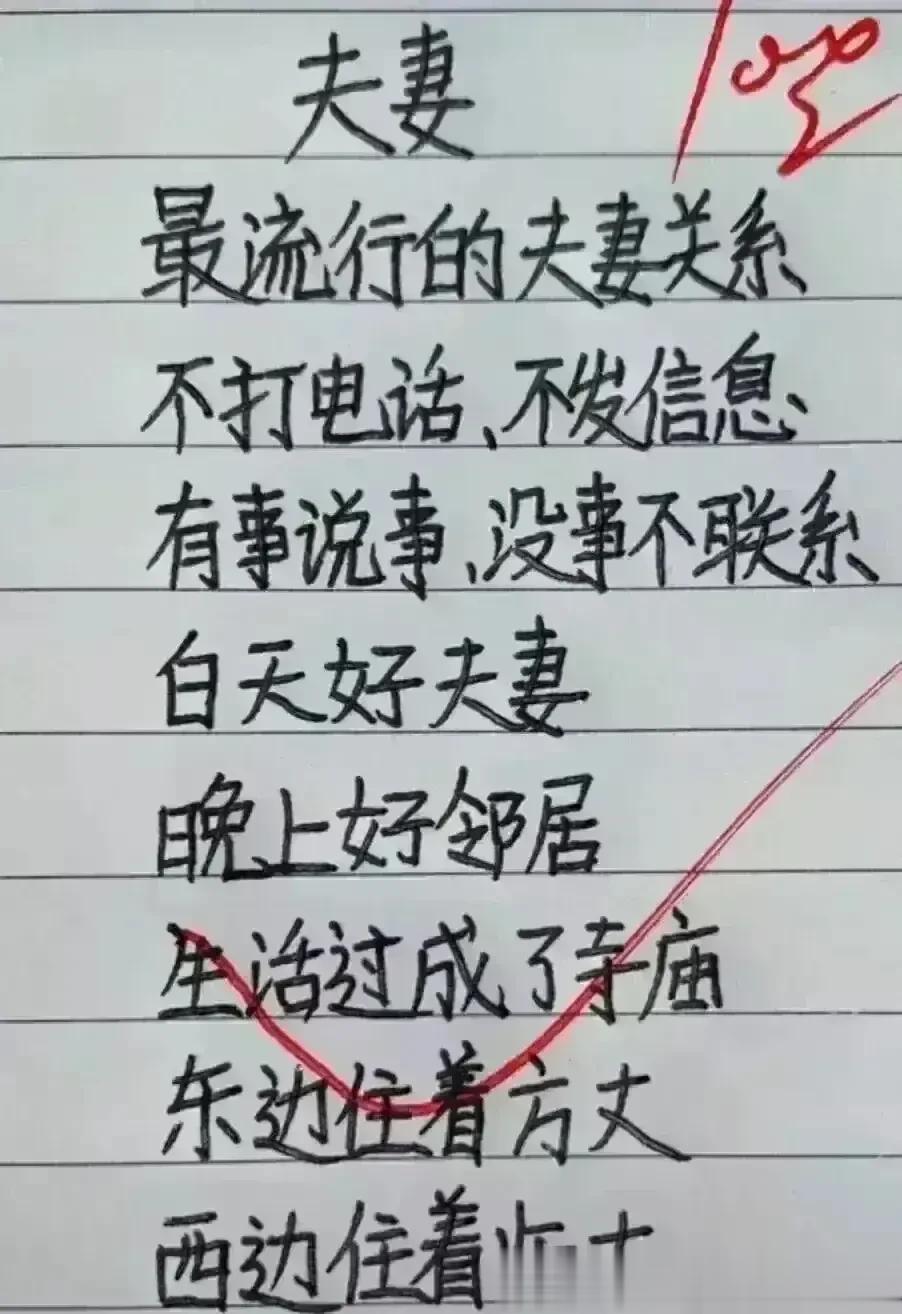 夫妻
最流行的夫妻关系
不打电话、不发信息、
有事说事、没事不联系
白天好夫妻
晚上好邻居
生活过成了寺庙
东边住着方丈
西边住着